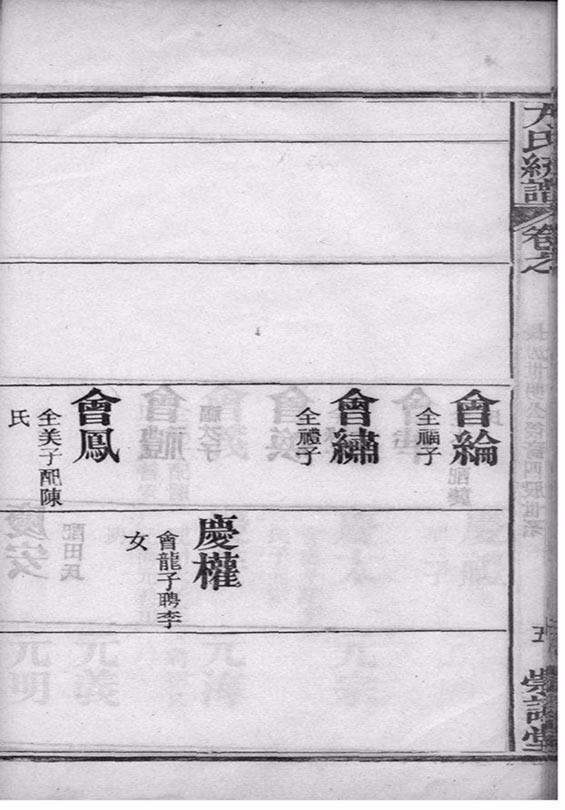 氏統譜
卷之
五
堂
會綸
全福子
會繡
全禮子
會鳳
全美子配陳
氏
慶權
會龍子聘李
女